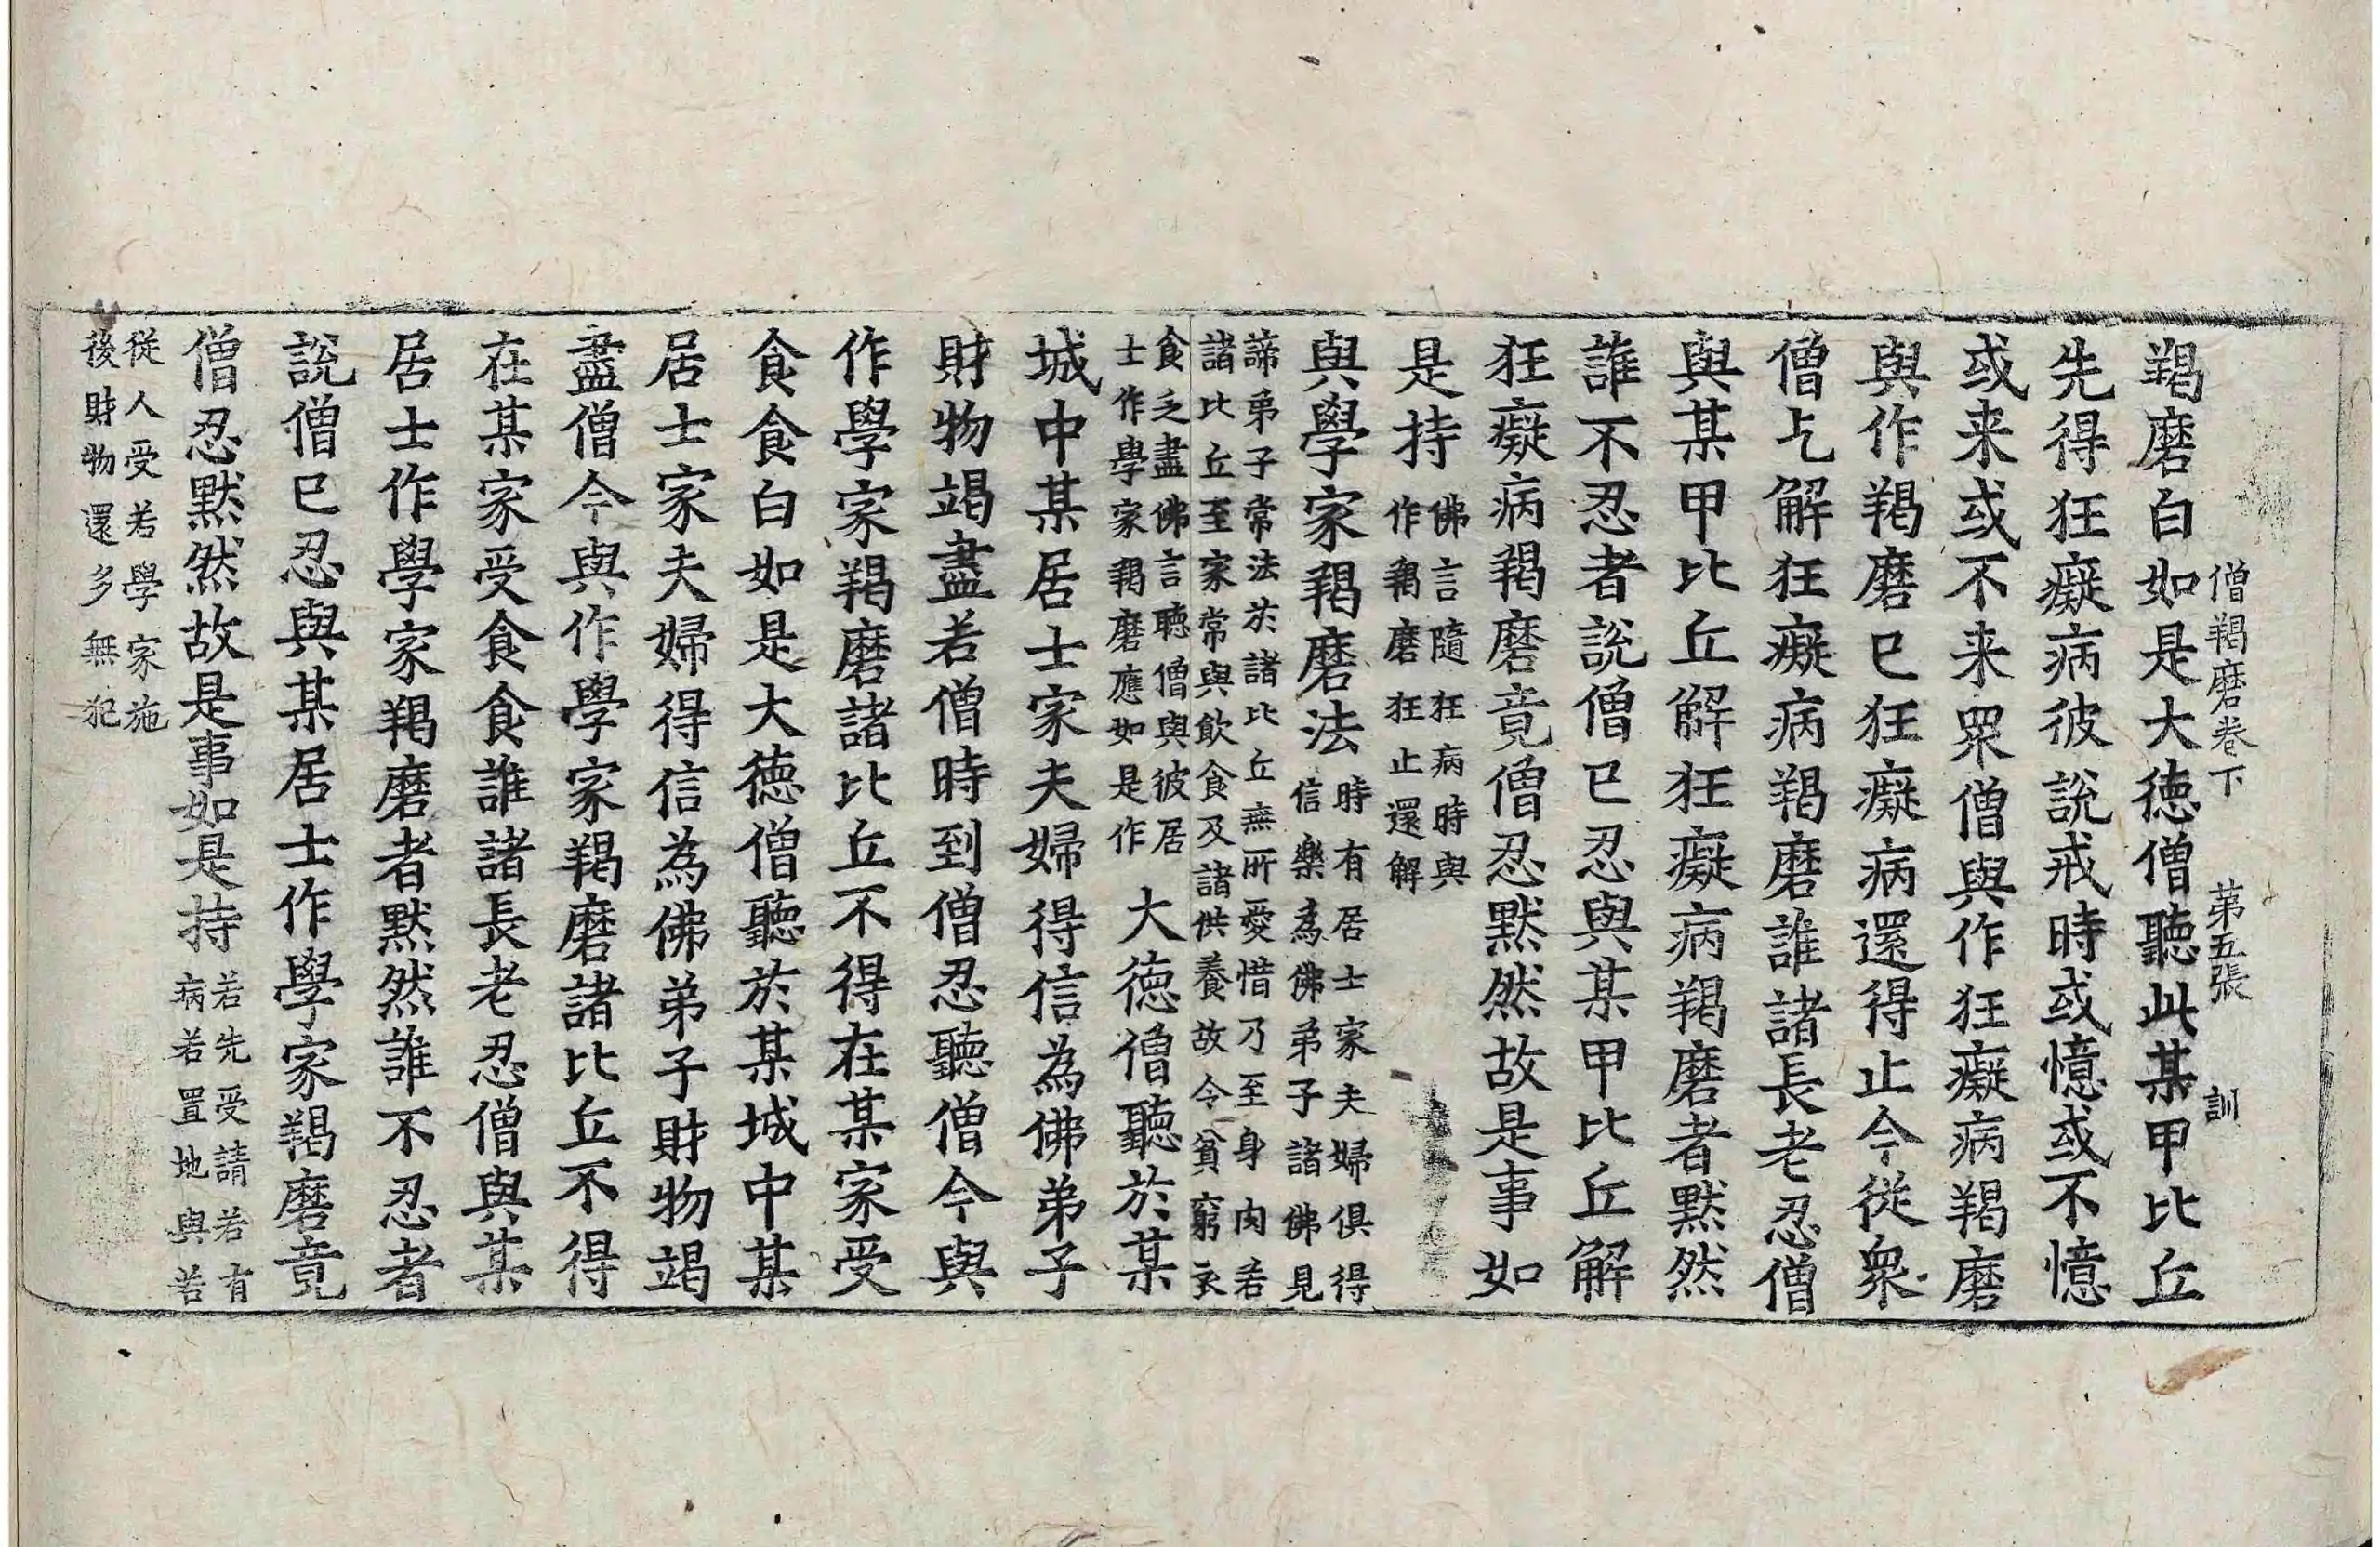 僧羯磨卷下　第五張　訓
羯磨白如是大徳僧聽此某甲比丘
先得狂癡病彼說戒時或憶或不憶
或来或不来眾僧與作狂癡病羯磨
與作羯磨已狂癡病還得止今從眾
僧乞解狂癡病羯磨誰諸長老忍僧
與某甲比丘解狂癡病羯磨者默然
誰不忍者說僧已忍與某甲比丘解
狂癡病羯磨竟僧忍默然故是事如
是持
佛言隨狂病時與
作羯磨狂止還解
與學家羯磨法
時有居士家夫婦俱得
信樂為佛弟子諸佛見
諦弟子常法於諸比丘無所愛惜乃至身肉若
諸比丘至家常與飲食及諸供養故今貧窮衣
食乏盡佛言聽僧與彼居
士作學家羯磨應如是作
大徳僧聽於某
城中某居士家夫婦得信為佛弟子
財物竭盡若僧時到僧忍聽僧今與
作學家羯磨諸比丘不得在某家受
食食白如是大徳僧聽於某城中某
居士家夫婦得信為佛弟子財物竭
盡僧今與作學家羯磨諸比丘不得
在某家受食食誰諸長老忍僧與某
居士作學家羯磨者默然誰不忍者
說僧已忍與某居士作學家羯磨竟
僧忍默然故是事如是持
若先受請若有
病若置地與若
從人受若學家施
後財物還多無犯